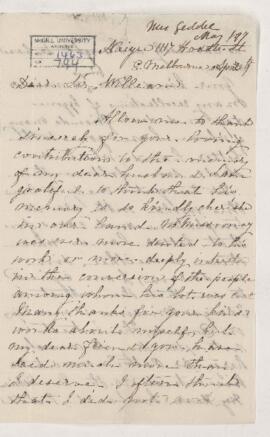 Mrs Geddie
May 197
McGILL UNIVERSITY
ARCHIVES
ACC. NO. 1463
REF. 794
Paige 117 Hoddle St
E. Melbourne
Dear Sir William
Allow me to thank
sincerely for your loving
contribution to the memory
of my dear husband. I am
grateful to think that his
memory is so kindly cherished
in our land. No Missionary
was ever more devoted to his
work or more deeply interested
in the conversion of the people
among whom his lot was cast
Many thanks for your kind
words about myself, but
my dear friend you have
said much more than
I deserve. I often think
that I did not